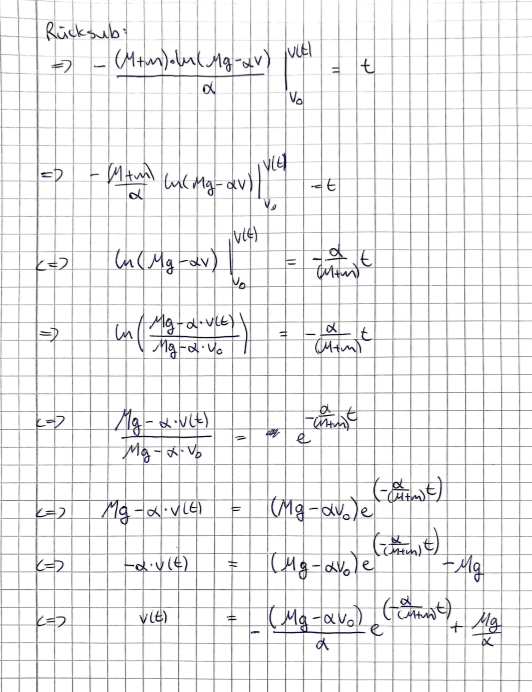 Rücksub:
=> - (M+m)·ln(Mg-αv)/α |_{v₀}^{v(t)} = t
=> - (M+m)/α ln(Mg-αv) |_{v₀}^{v(t)} = t
<=> ln(Mg-αv) |_{v₀}^{v(t)} = - α/(M+m) t
=> ln((Mg-α·v(t))/(Mg-α·v₀)) = - α/(M+m) t
<=> (Mg-α·v(t))/(Mg-α·v₀) = e^{-α/(M+m) t}
<=> Mg-α·v(t) = (Mg-αv₀)e^{(-α/(M+m) t)}
<=> -α·v(t) = (Mg-αv₀)e^{(-α/(M+m) t)} - Mg
<=> v(t) = - (Mg-αv₀)/α e^{(-α/(M+m) t)} + Mg/α